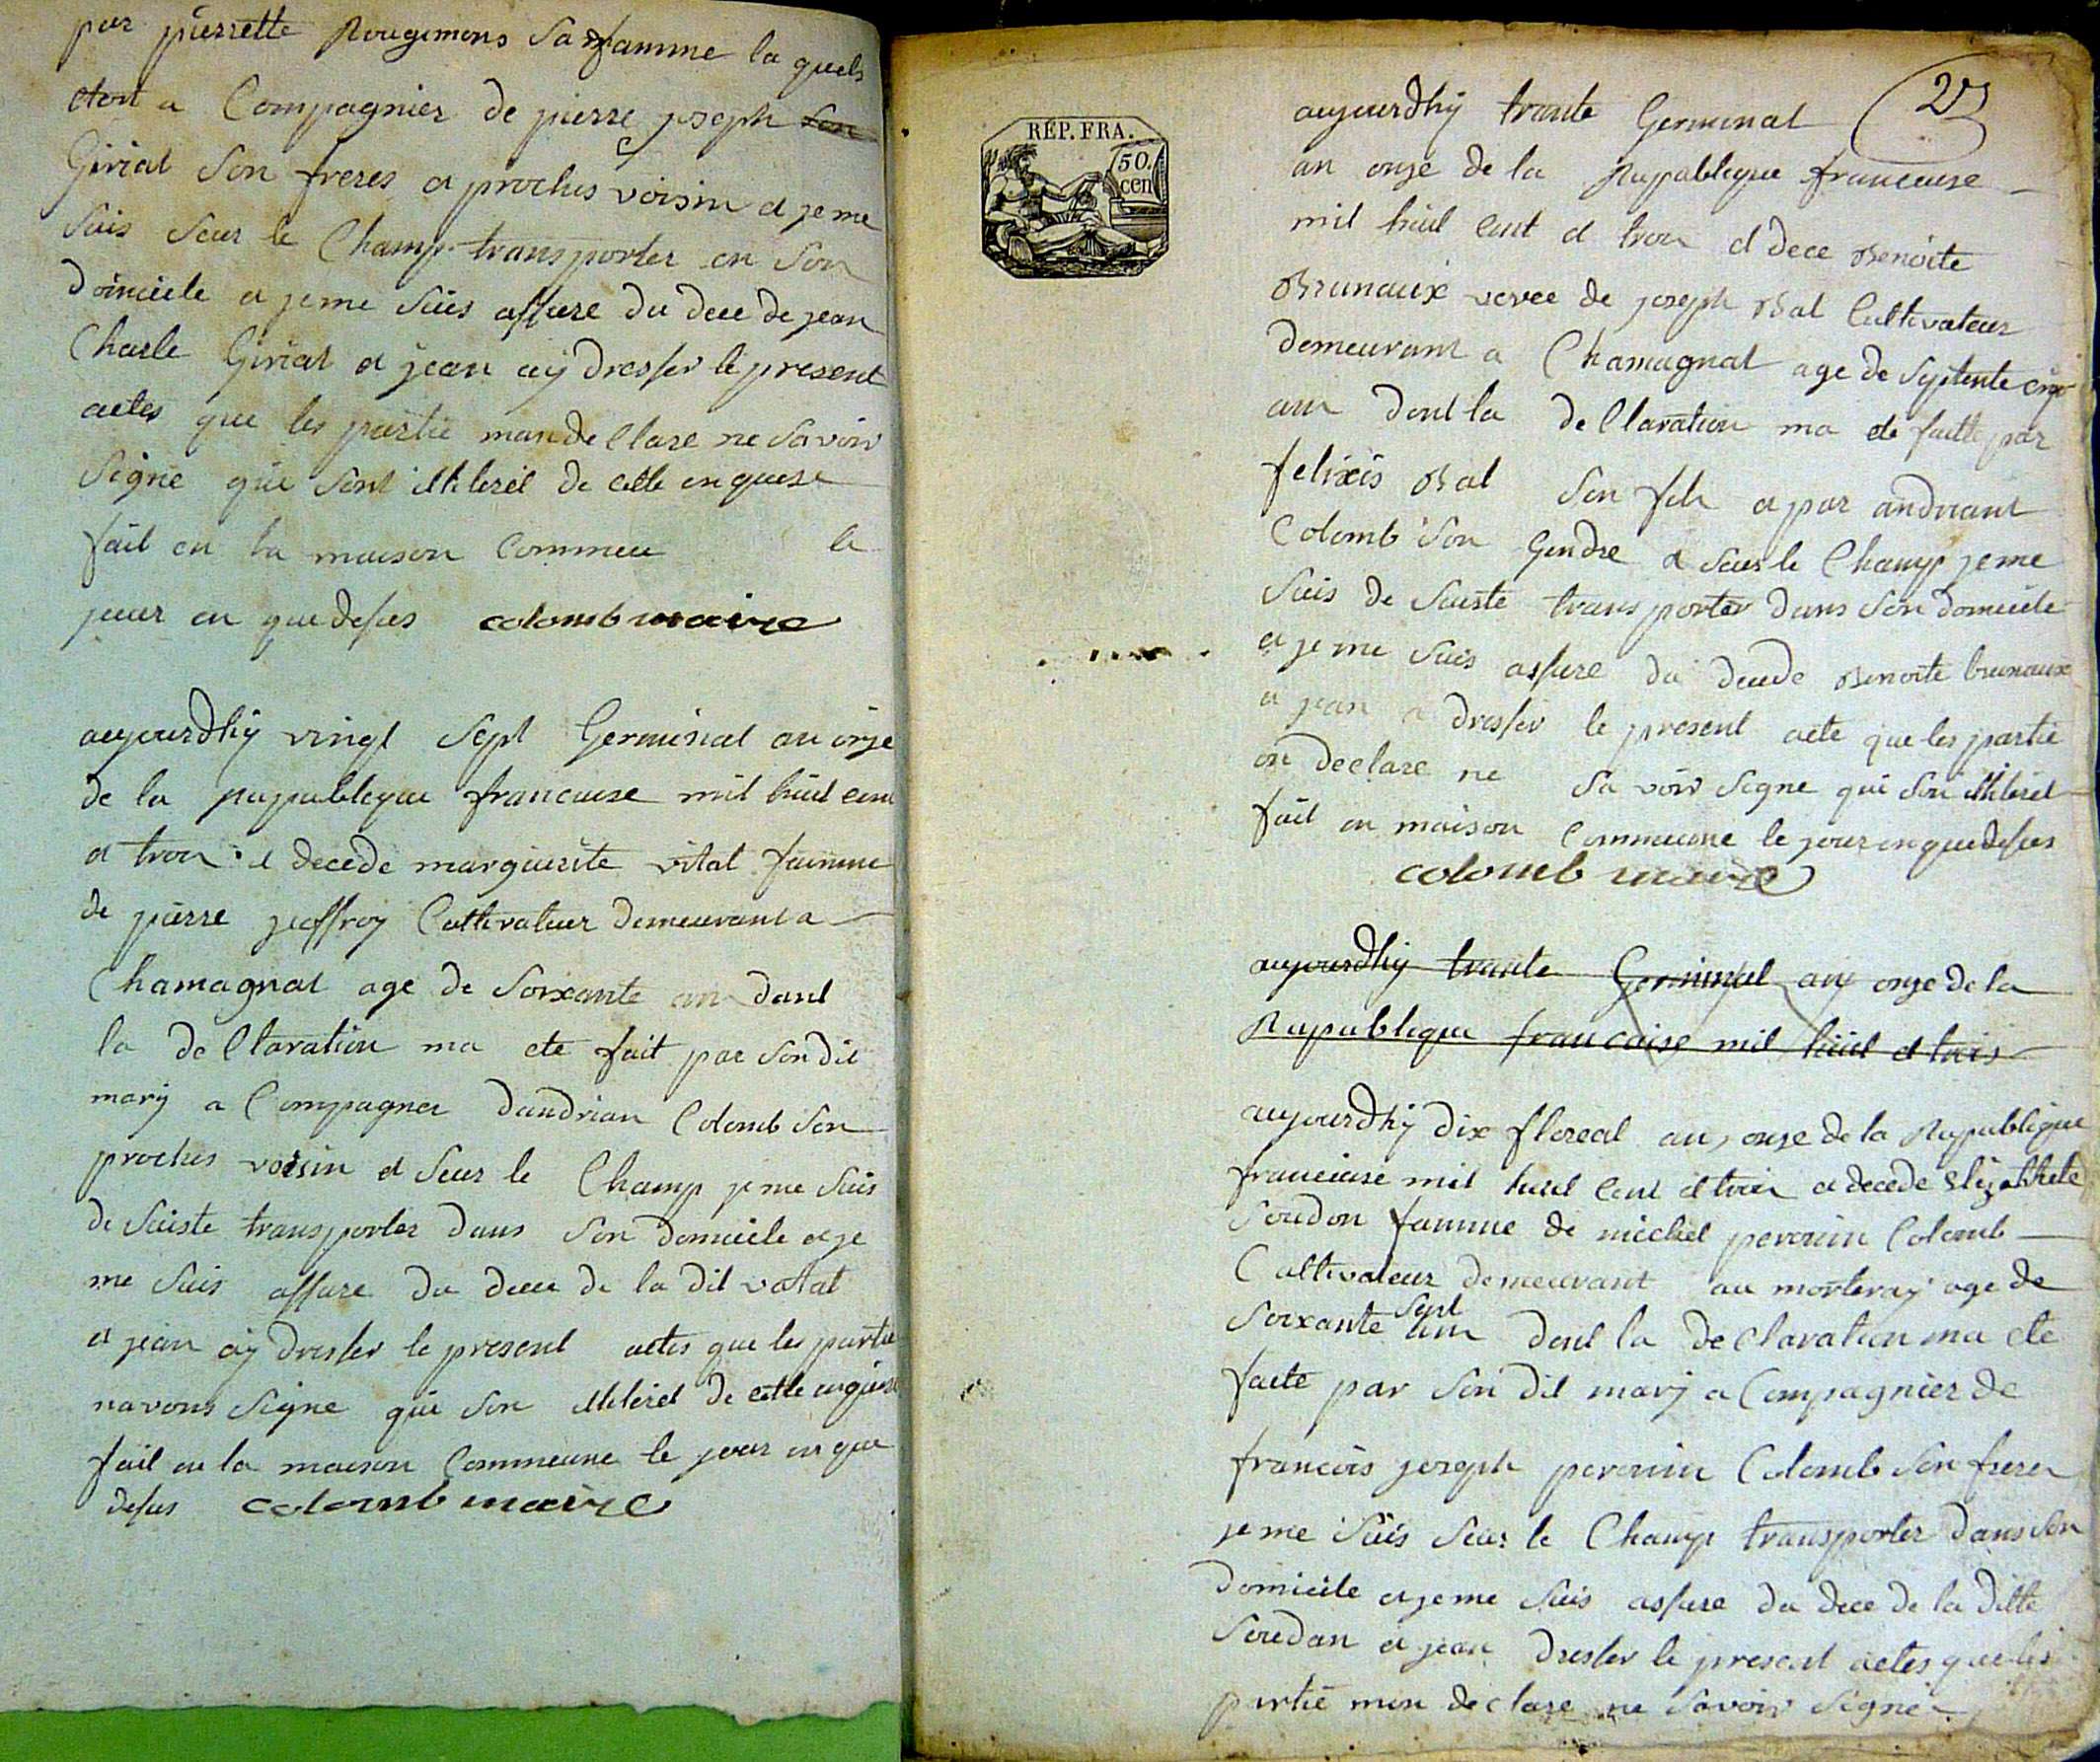 par pierrette Rougimons Sa famme la quels
etoit a Compagnier de pierre joseph son
Giriat Son freres a proches voisin a je me
Suis Seur le Champ transporter en Son
Doimicile a je me Suis assure du dece de jean
Charle Giriat a jean aÿ dresser le present
actes que les partie man de Clare ne Savoir
Signe que Sont illiterél de cette enquese
fait en la maison Commeu le
jour en que desus colomb maire
aujourdhÿ vingt Sept Germinal an onze
de la Rupublique francaise mil huit cent
a troa a decede marguerite vital famme
de pierre jeoffroy Cultivateur demeurant a
Chamagnat age de Soixante an dont
la de Claration ma ete fait par Son dit
marÿ a Compagner dandrian Colomb Son
proches voisin a Seur le Champ je me Suis
de Suiste transporter dans Son domicile a je
me Suis assure du dece de la dit vatat
a jean aÿ dresser le present actes que les partie
navons Signe qui Son illiteret de cette enquese
fait en la maison Commeune le jour en que
desus colomb maire
RÉP. FRA.
50. cen
aujourdhÿ trante Germinal 23
an onze de la Rupublique francaise
mil huit cent et troa a dece Benoite
Brunaux veree de joseph Bal Cultivateur
demeurant a Chamagnat age de Septente cinq
an dont la de Claration ma ete faitte par
felixis Bal Son fils a par andriant
Colomb Son Gendre a Seur le Champ je me
Suis de Suiste transporter dans Son domicile
a je me Suis assure du decede Benoite brunaux
a jean a dresser le present acte que les partie
on declare ne Savoir Signe qui Son illiterel
fait en maison Commeune le jour en que desus
colomb maire
aujourdhÿ trante Germinal an onze de la
Rupublique francaise mil huit et trois
aujourdhÿ dix floreal an onze de la Rupublique
francaise mil huit cent et troa a decede Elizabhete
Soudon famme de michel perouin Colomb
Cultivateur demeurant au morteraÿ age de
Soixante sept an dont la de Claration ma ete
faite par Son dit marÿ a Compagnier de
francois joseph perouin Colomb Son frerer
je me Suis Seur le Champ transporter dans Son
domicile a je me Suis assure du dece de la ditte
Soudan a jean dresser le present actes que les
partie mon declare ne Savoir Signe